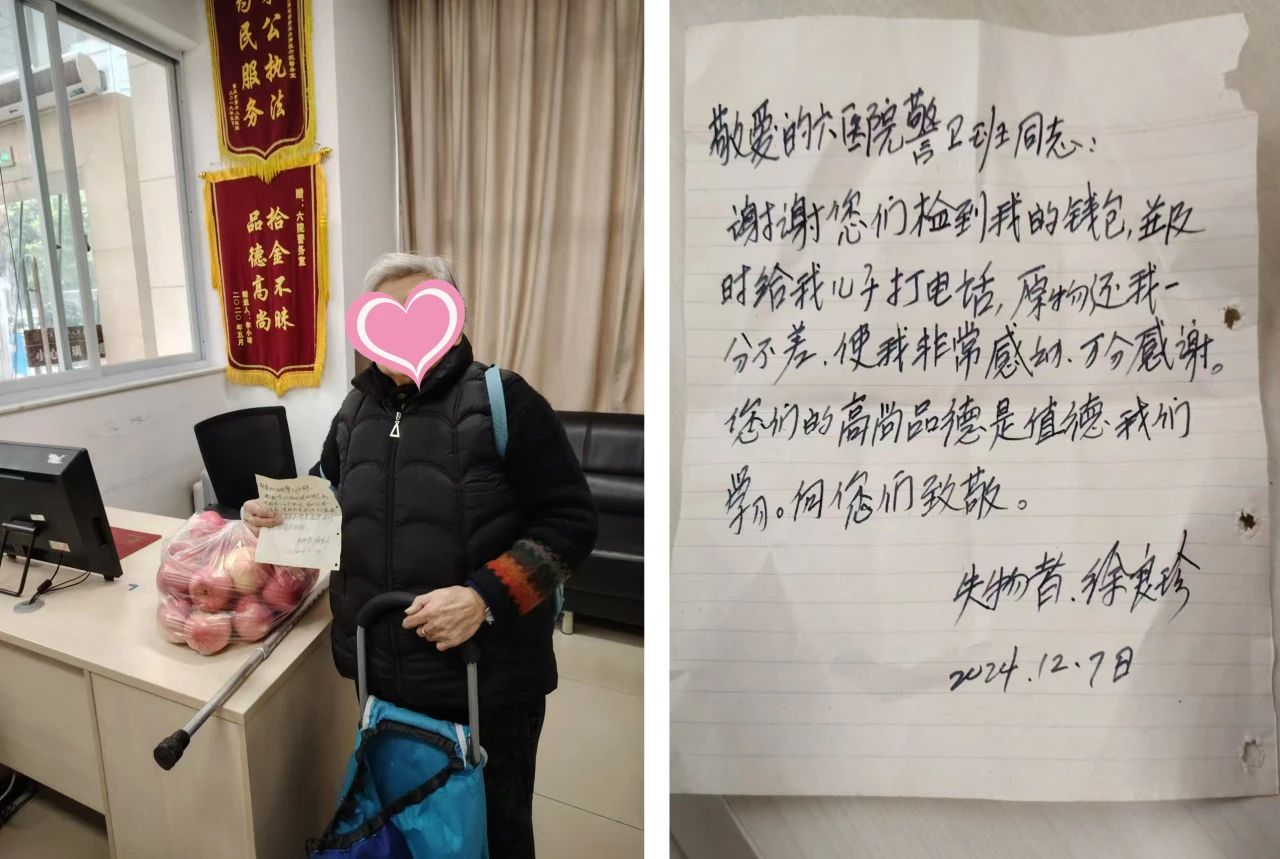 公执法
民服务
赠：六院警务室
拾金不昧
品德高尚
二〇二〇年五月
小心
敬爱的六医院警卫班同志：
谢谢您们检到我的钱包,並及
时给我儿子打电话,原物还我一
分不差.使我非常感动.万分感谢。
您们的高尚品德是值德我们
学习。向您们致敬。
失物者.徐良珍
2024.12.7日